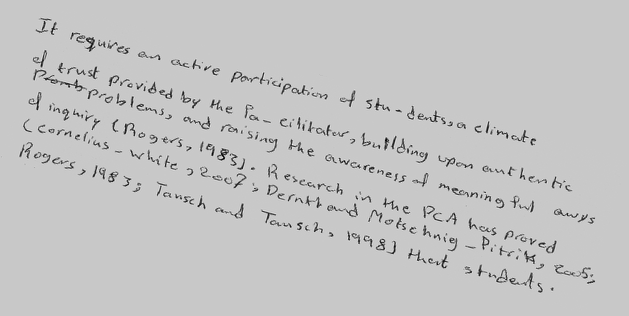 It requires an active participation of stu-dents, a climate
of trust provided by the fa-cilitator, building upon authentic
problems, and raising the awareness of meaningful ways
of inquiry (Rogers, 1983). Research in the PCA has proved
(Cornelius-White, 2007; Derntl and Motschnig-Pitrik, 2005;
Rogers, 1983; Tausch and Tausch, 1998) that students.